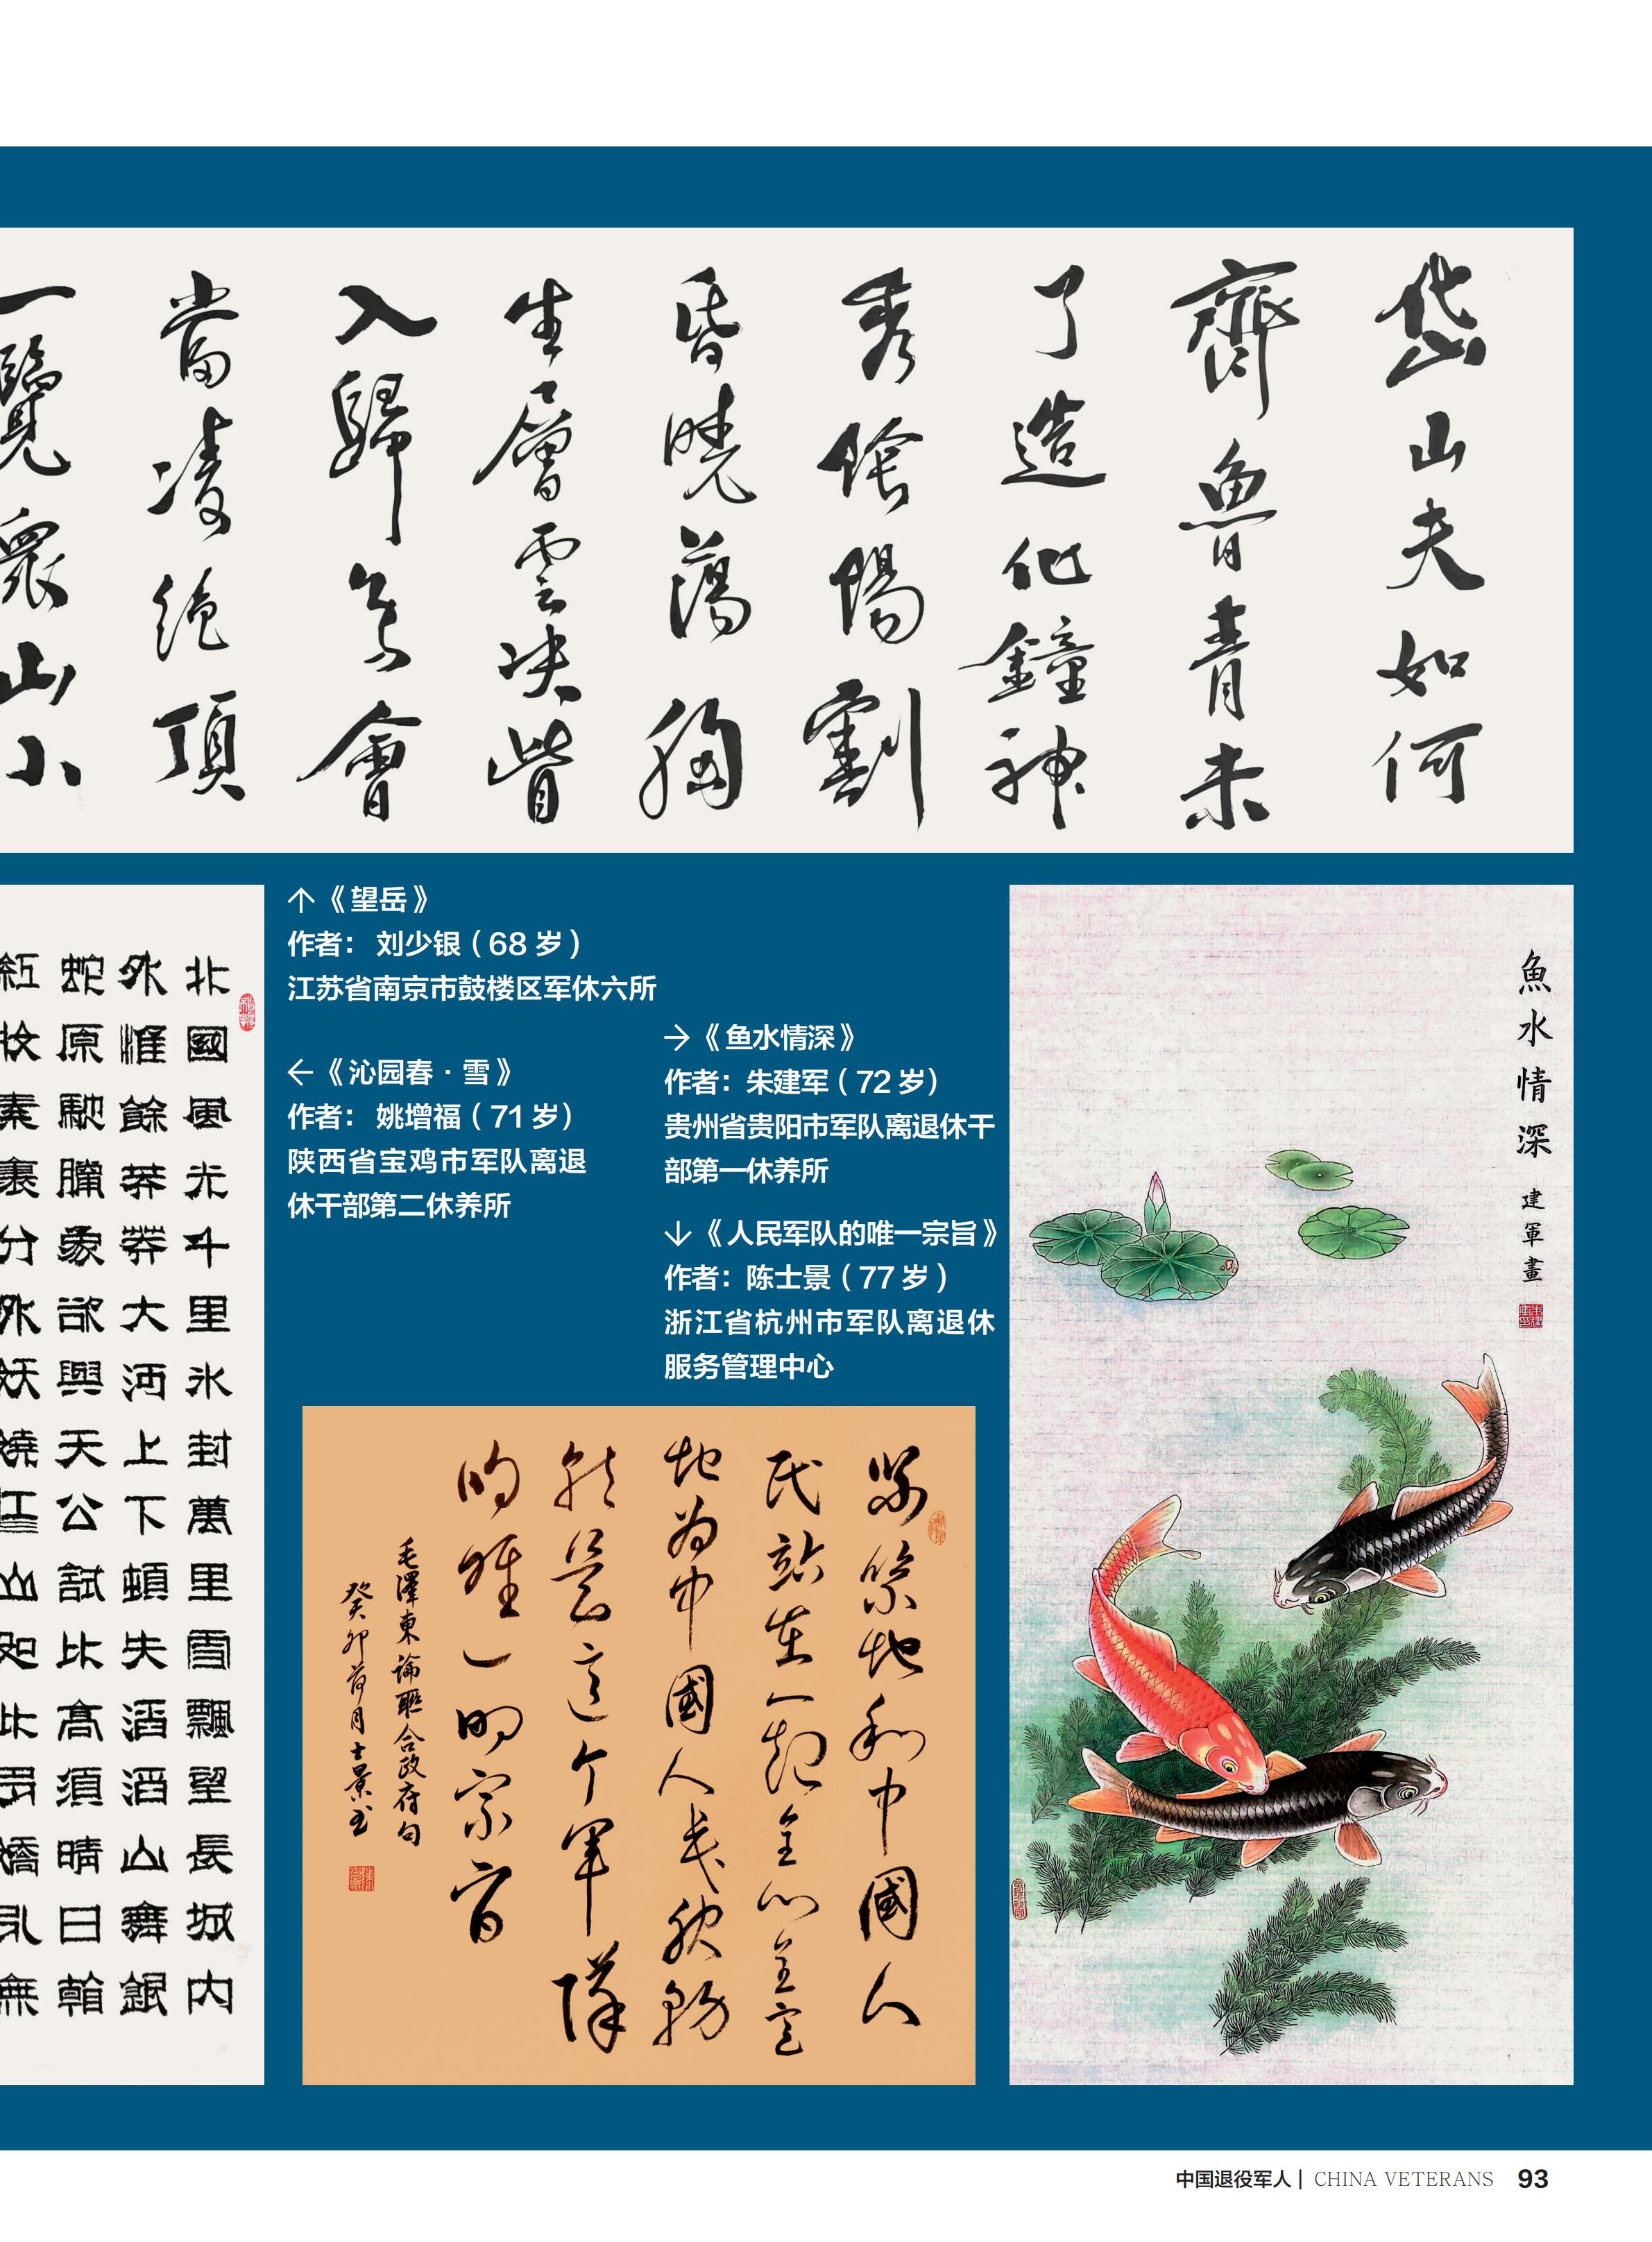 岱山夫如何
齊魯青未
了造化鐘神
秀陰陽割
昏曉蕩胸
生層雲决眥
入歸鳥會
當凌絶頂
一覽衆山小
↑《望岳》
作者： 刘少银（68 岁）
江苏省南京市鼓楼区军休六所
←《沁园春·雪》
作者： 姚增福（71 岁）
陕西省宝鸡市军队离退
休干部第二休养所
→《鱼水情深》
作者：朱建军（72 岁）
贵州省贵阳市军队离退休干
部第一休养所
↓《人民军队的唯一宗旨》
作者：陈士景（77 岁）
浙江省杭州市军队离退休
服务管理中心
北國風光千里氷封萬里雪飄望長城内
外惟餘莽莽大河上下頓失滔滔山舞銀
蛇原馳臘象欲與天公試比高須晴日看
紅妝素裹分外妖嬈江山如此多嬌引無
緊緊地和中國人
民站在一起全心全意
地為中國人民服務
就是这个軍隊
的唯一的宗旨
毛澤東論聯合政府句
癸卯荷月士景书
魚水情深
建軍畫
中国退役军人 | CHINA VETERANS 93